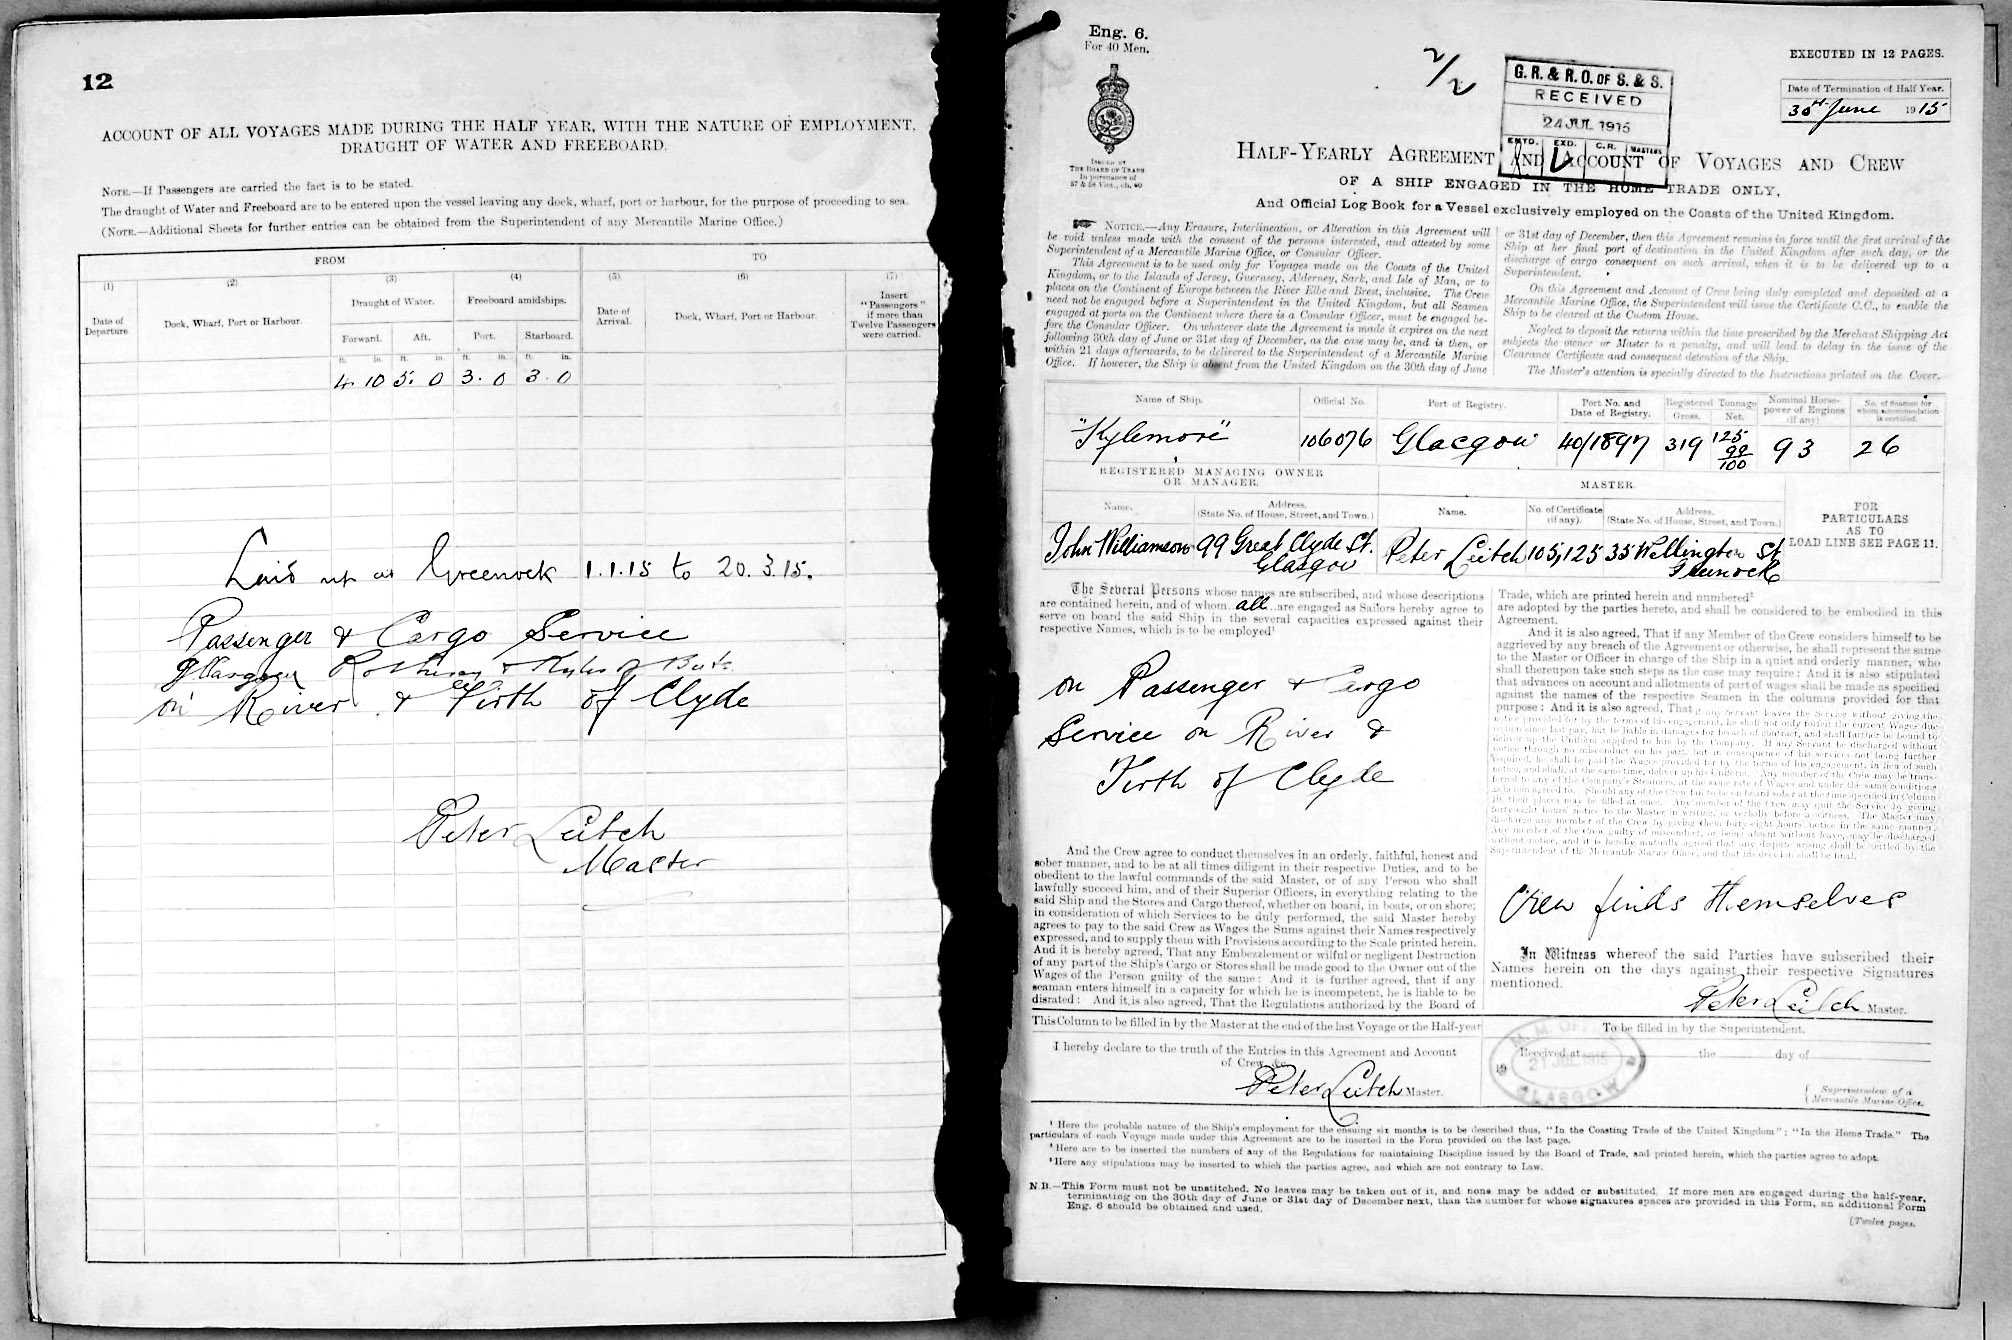 12
ACCOUNT OF ALL VOYAGES MADE DURING THE HALF YEAR, WITH THE NATURE OF EMPLOYMENT,
DRAUGHT OF WATER AND FREEBOARD.
NOTE.—If Passengers are carried the fact is to be stated.
The draught of Water and Freeboard are to be entered upon the vessel leaving any dock, wharf, port or harbour, for the purpose of proceeding to sea.
(NOTE.—Additional Sheets for further entries can be obtained from the Superintendent of any Mercantile Marine Office.)
FROM TO
(1) (2) (3) (4) (5) (6) (7)
Date of Departure. Dock, Wharf, Port or Harbour. Draught of Water. Freeboard amidships. Date of Arrival. Dock, Wharf, Port or Harbour. Insert "Passengers" if more than Twelve Passengers were carried.
Forward. Aft. Port. Starboard.
ft. in. ft. in. ft. in. ft. in.
4 10 5. 0 3. 0 3. 0
Laid up at Greenock 1.1.15 to 20.3.15.
Passenger & Cargo Service
Glasgow Rothesay & Kyles of Bute
on River & Firth of Clyde
Peter Leitch
Master
Eng. 6.
For 40 Men.
ISSUED BY
THE BOARD OF TRADE
In pursuance of
57 & 58 Vict., ch. 60
2/2
G.R. & R.O. OF S. & S.
RECEIVED
24 JUL 1915
ENTD. EXD. C.R. MASTERS
EXECUTED IN 12 PAGES.
Date of Termination of Half Year.
30th June 1915
HALF-YEARLY AGREEMENT AND ACCOUNT OF VOYAGES AND CREW
OF A SHIP ENGAGED IN THE HOME TRADE ONLY,
And Official Log Book for a Vessel exclusively employed on the Coasts of the United Kingdom.
NOTICE.—Any Erasure, Interlineation, or Alteration in this Agreement will
be void unless made with the consent of the persons interested, and attested by some
Superintendent of a Mercantile Marine Office, or Consular Officer.
This Agreement is to be used only for Voyages made on the Coasts of the United
Kingdom, or to the Islands of Jersey, Guernsey, Alderney, Sark, and Isle of Man, or to
places on the Continent of Europe between the River Elbe and Brest, inclusive. The Crew
need not be engaged before a Superintendent in the United Kingdom, but all Seamen
engaged at ports on the Continent where there is a Consular Officer, must be engaged be-
fore the Consular Officer. On whatever date the Agreement is made it expires on the next
following 30th day of June or 31st day of December, as the case may be, and is then, or
within 21 days afterwards, to be delivered to the Superintendent of a Mercantile Marine
Office. If however, the Ship is absent from the United Kingdom on the 30th day of June
or 31st day of December, then this Agreement remains in force until the first arrival of the
Ship at her final port of destination in the United Kingdom after such day, or the
discharge of cargo consequent on such arrival, when it is to be delivered up to a
Superintendent.
On this Agreement and Account of Crew being duly completed and deposited at a
Mercantile Marine Office, the Superintendent will issue the Certificate C.C., to enable the
Ship to be cleared at the Custom House.
Neglect to deposit the returns within the time prescribed by the Merchant Shipping Act
subjects the owner or Master to a penalty, and will lead to delay in the issue of the
Clearance Certificate and consequent detention of the Ship.
The Master's attention is specially directed to the Instructions printed on the Cover.
Name of Ship. Official No. Port of Registry. Port No. and Date of Registry. Registered Tonnage Gross. Net. Nominal Horse-power of Engines (if any) No. of Seamen for whom accommodation is certified.
"Kylemore" 106076 Glasgow 40/1897 319 125 99/100 93 26
REGISTERED MANAGING OWNER
OR MANAGER.
MASTER.
FOR PARTICULARS AS TO LOAD LINE SEE PAGE 11.
Name. Address. (State No. of House, Street, and Town.) Name. No. of Certificate (if any). Address. (State No. of House, Street, and Town.)
John Williamson 99 Great Clyde St. Glasgow Peter Leitch 105,125 35 Wellington St Greenock
The Several Persons whose names are subscribed, and whose descriptions
are contained herein, and of whom all are engaged as Sailors hereby agree to
serve on board the said Ship in the several capacities expressed against their
respective Names, which is to be employed¹
on Passenger & Cargo
Service on River &
Firth of Clyde
And the Crew agree to conduct themselves in an orderly, faithful, honest and
sober manner, and to be at all times diligent in their respective Duties, and to be
obedient to the lawful commands of the said Master, or of any Person who shall
lawfully succeed him, and of their Superior Officers, in everything relating to the
said Ship and the Stores and Cargo thereof, whether on board, in boats, or on shore;
in consideration of which Services to be duly performed, the said Master hereby
agrees to pay to the said Crew as Wages the Sums against their Names respectively
expressed, and to supply them with Provisions according to the Scale printed herein.
And it is hereby agreed, That any Embezzlement or wilful or negligent Destruction
of any part of the Ship's Cargo or Stores shall be made good to the Owner out of the
Wages of the Person guilty of the same: And it is further agreed, that if any
seaman enters himself in a capacity for which he is incompetent, he is liable to be
disrated: And it is also agreed, That the Regulations authorized by the Board of
Trade, which are printed herein and numbered²
are adopted by the parties hereto, and shall be considered to be embodied in this
Agreement.
And it is also agreed, That if any Member of the Crew considers himself to be
aggrieved by any breach of the Agreement or otherwise, he shall represent the same
to the Master or Officer in charge of the Ship in a quiet and orderly manner, who
shall thereupon take such steps as the case may require: And it is also stipulated
that advances on account and allotments of part of wages shall be made as specified
against the names of the respective Seamen in the columns provided for that
purpose: And it is also agreed, That if any Servant leaves the Service without giving the
Superintendent of the Mercantile Marine Office, and that his decision shall be final.
Crew finds themselves
In Witness whereof the said Parties have subscribed their
Names herein on the days against their respective Signatures
mentioned.
Peter Leitch Master.
This Column to be filled in by the Master at the end of the last Voyage or the Half-year
I hereby declare to the truth of the Entries in this Agreement and Account
of Crew, &c.
Peter Leitch Master.
To be filled in by the Superintendent.
Received at the day of
21 JUL 1915
GLASGOW
Superintendent of a
Mercantile Marine Office.
¹ Here the probable nature of the Ship's employment for the ensuing six months is to be described thus, "In the Coasting Trade of the United Kingdom"; "In the Home Trade." The
particulars of each Voyage made under this Agreement are to be inserted in the Form provided on the last page.
² Here are to be inserted the numbers of any of the Regulations for maintaining Discipline issued by the Board of Trade, and printed herein, which the parties agree to adopt.
³ Here any stipulations may be inserted to which the parties agree, and which are not contrary to Law.
N.B.—This Form must not be unstitched. No leaves may be taken out of it, and none may be added or substituted. If more men are engaged during the half-year,
terminating on the 30th day of June or 31st day of December next, than the number for whose signatures spaces are provided in this Form, an additional Form
Eng. 6 should be obtained and used.
[Twelve pages.